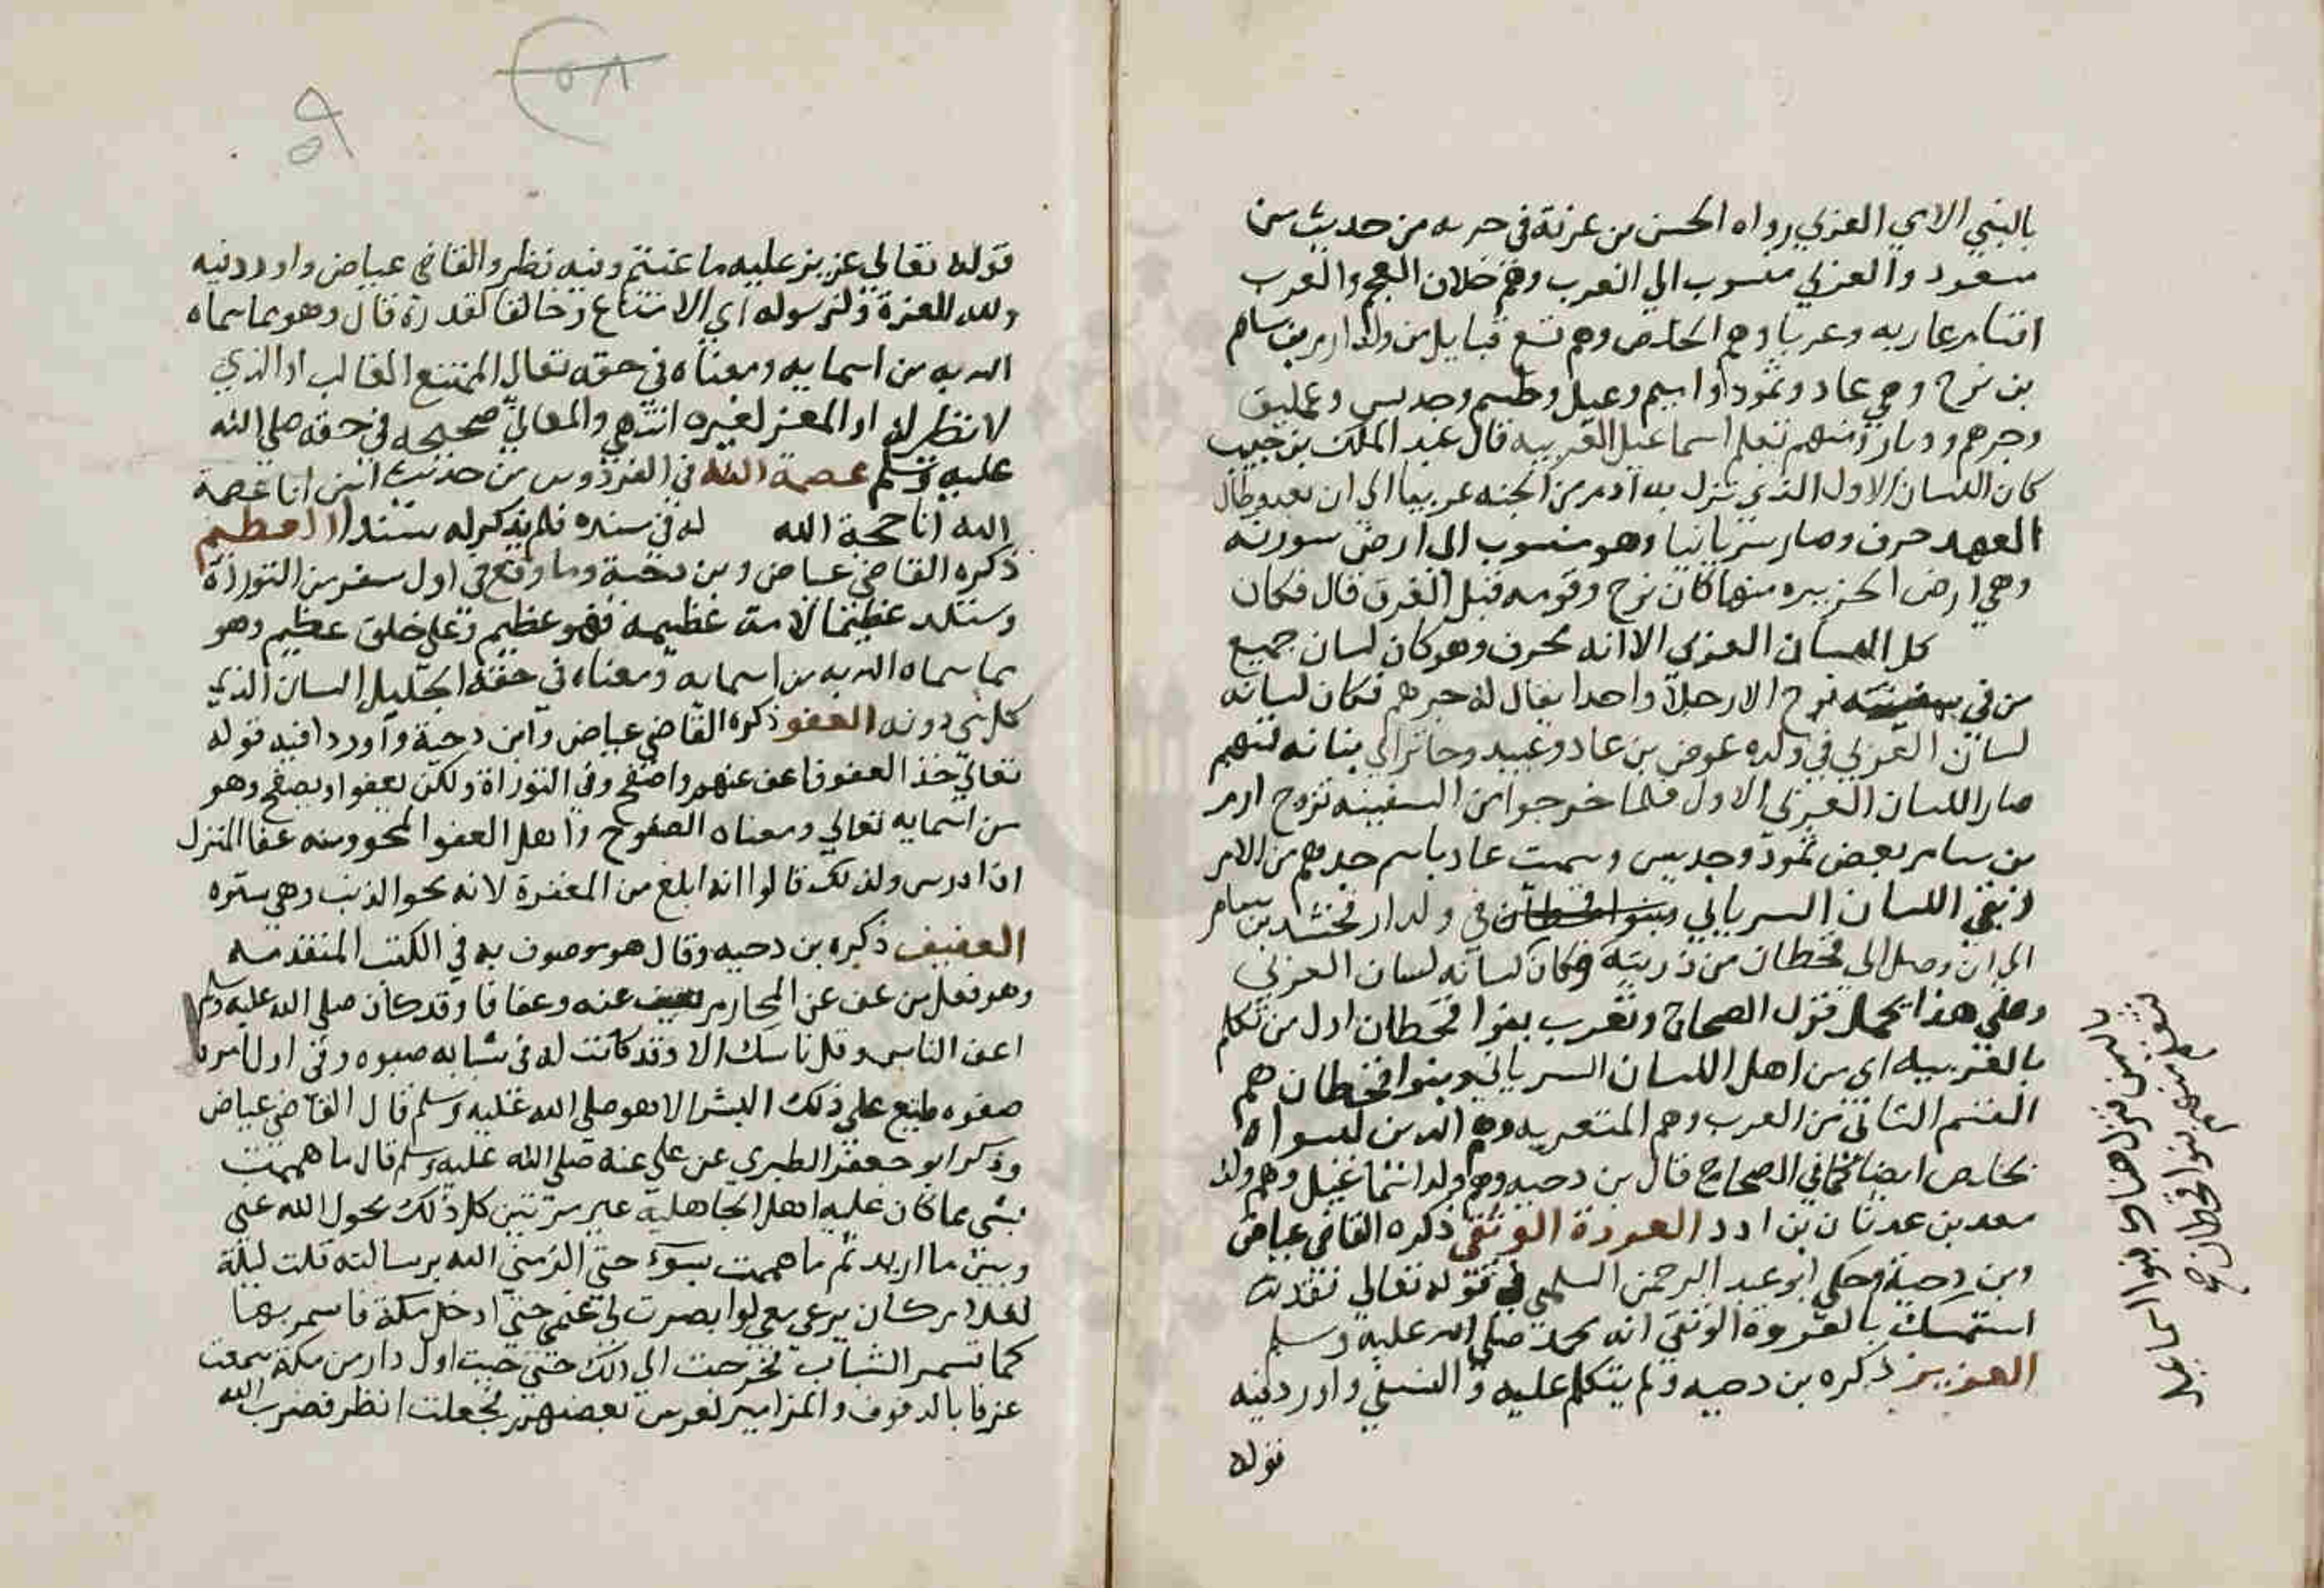 بالنبي الامي العربي رواه الحسن بن عرفة في جزءه من حديث بن
مسعود والعربي منسوب الي العرب وهم خلاف العجم والعرب
اقسام عاربه وعربا وهم الخلص وهم تسع قبايل من ولد ارم بن سام
بن نوح وهي عاد وثمود واميم وعبيل وطسم وجديس وعمليق
وجرهم ووبار ومنهم تعلم اسماعيل العربيه قال عبد الملك بن حبيب
كان اللسان الاول الذي نزل به آدم من الجنه عربيا الي ان بعد وطال
العهد حرف وصار سريانيا وهو منسوب الي ارض سورنه
وهي ارض الجزيره منها كان نوح وقومه قبل الغرق قال فكان
كل اللسان العربي الا انه محرف وهو كان لسان جميع
من في سفينته نوح الا رجلا واحدا يقال له جرهم فكان لسانه
لسان العربي في ولده عوص بن عاد وعبيد وجاثر الي بناته فمنهم
صار اللسان العربي الاول فلما خرجوا من السفينه تزوج ارم
بن سام بعض ثمود وجديس وسميت عاد باسم جدهم من الام
وبقي اللسان السرياني وبنوا قحطان في ولد ارفخشد بن سام
الي ان وصل الي قحطان من ذريته وكان لسانه لسان العربي
وعلي هذا يحمل قول الصحاح وتعرب بنوا قحطان اول من تكلم
بالعربيه اي من اهل اللسان السرياني وبنوا قحطان هم
القسم الثاني من العرب وهم المتعربه وهم الذين ليسوا ا
بخلص ايضا كما في الصحاح قال بن دحيه وهم ولد اسماعيل وهم ولد
معد بن عدنان بن ادد العروة الوثقي ذكره القاضي عياض
وبن دحية وحكي ابو عبد الرحمن السلمي في قوله تعالي فقد
استمسك بالعروة الوثقي انه محمد صلي الله عليه وسلم
العزيز ذكره بن دحيه ولم يتكلم عليه والنسفي واورد فيه
قوله
فتعلم منهم بنوا قحطان صح
قوله تعالي عزيز عليه ما عنتم وفيه نظر والقاضي عياض واورد فيه
ولله العزة ولرسوله اي الامتناع وجلالة القدرة قال وهو مما سماه
الله به من اسمايه ومعناه في حقه تعالي الممتنع الغالب او الذي
لا نظير له او المعز لغيره انتهي والمعاني صحيحه في حقه صلي الله
عليه وسلم عصمة الله في الفردوس من حديث انس انا عصمة
الله انا حجة الله له في سنده فلم يذكر له سندا العظيم
ذكره القاضي عياض وبن دحية وما وقع في اول سفر من التوراة
وستلد عظيما لامة عظيمه فهو عظيم وعلي خلق عظيم وهو
مما سماه الله به من اسمايه ومعناه في حقه الجليل الشان الذي
كل شي دونه العفو ذكره القاضي عياض وابن دحية واوردا فيه قوله
تعالي خذ العفو فاعف عنهم واصفح وفي التوراة ولكن يعفو او يصفح وهو
من اسمايه تعالي ومعناه الصفوح واصل العفو المحو ومنه عفا المنزل
اذا درس ولذلك قالوا انه ابلغ من المغفرة لانه محو الذنب وهي ستره
العفيف ذكره بن دحيه وقال هو موصوف به في الكتب المتقدمه
وهو فعيل من عف عن المحارم عفة وعفافا وقد كان صلي الله عليه وسلم
اعف الناس وقل ناسك الا وقد كانت له في شبابه صبوه وفي اول امره
صفوه طبع علي ذلك البشر الا هو صلي الله عليه وسلم قال القاضي عياض
وذكر ابو جعفر الطبري عن علي عنه صلي الله عليه وسلم قال ما هممت
بشي مما كان عليه اهل الجاهلية غير مرتين كل ذلك يحول الله عني
وبين ما اريد ثم ما هممت بسوء حتي اكرمني الله برسالته قلت ليلة
لغلام كان يرعي معي لو ابصرت لي غنمي حتي ادخل مكة فاسمر بها
كما تسمر الشباب فخرجت الي ذلك حتي جيت اول دار من مكة سمعت
عزفا بالدفوف والمزامير لعرس بعضهم فجعلت انظر فضرب الله